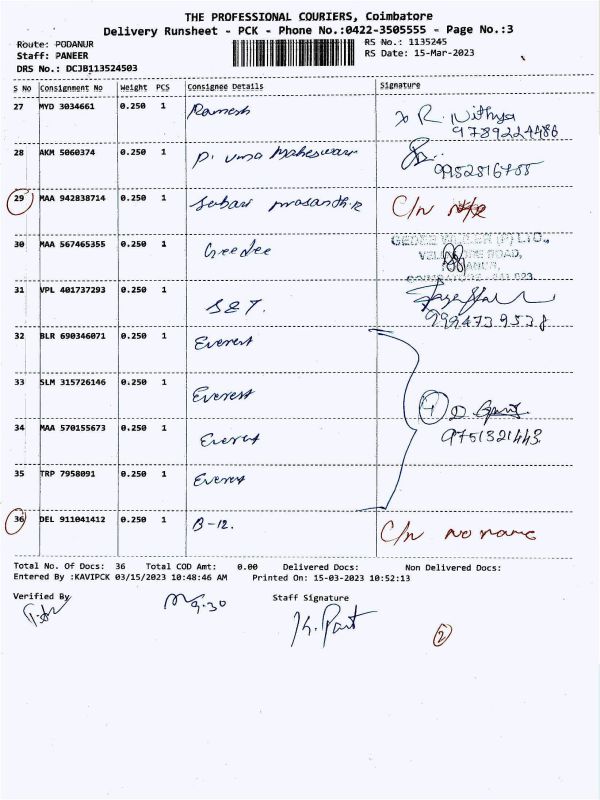 THE PROFESSIONAL COURIERS, Coimbatore
Delivery Runsheet - PCK - Phone No.:0422-3505555 - Page No.:3
Route: PODANUR RS No.: 1135245
Staff: PANEER RS Date: 15-Mar-2023
DRS No.: DCJB113524503
S No Consignment No Weight PCS Consignee Details Signature
27 MYD 3034661 0.250 1 Ramesh R. Nithya
9789224486
28 AKM 5060374 0.250 1 P. Uma Maheswari
29 MAA 942838714 0.250 1 prasandh.R C/n
30 MAA 567465355 0.250 1 GeeDee
31 VPL 401737293 0.250 1 S&T.
9994739538
32 BLR 690346071 0.250 1 Everest
33 SLM 315726146 0.250 1 Everest
34 MAA 570155673 0.250 1 Everest 4 D.
9751321443.
35 TRP 7958091 0.250 1 Everest
36 DEL 911041412 0.250 1 B-12. C/n no name
Total No. Of Docs: 36 Total COD Amt: 0.00 Delivered Docs: Non Delivered Docs:
Entered By :KAVIPCK 03/15/2023 10:48:46 AM Printed On: 15-03-2023 10:52:13
Verified By Staff Signature
9.30
2